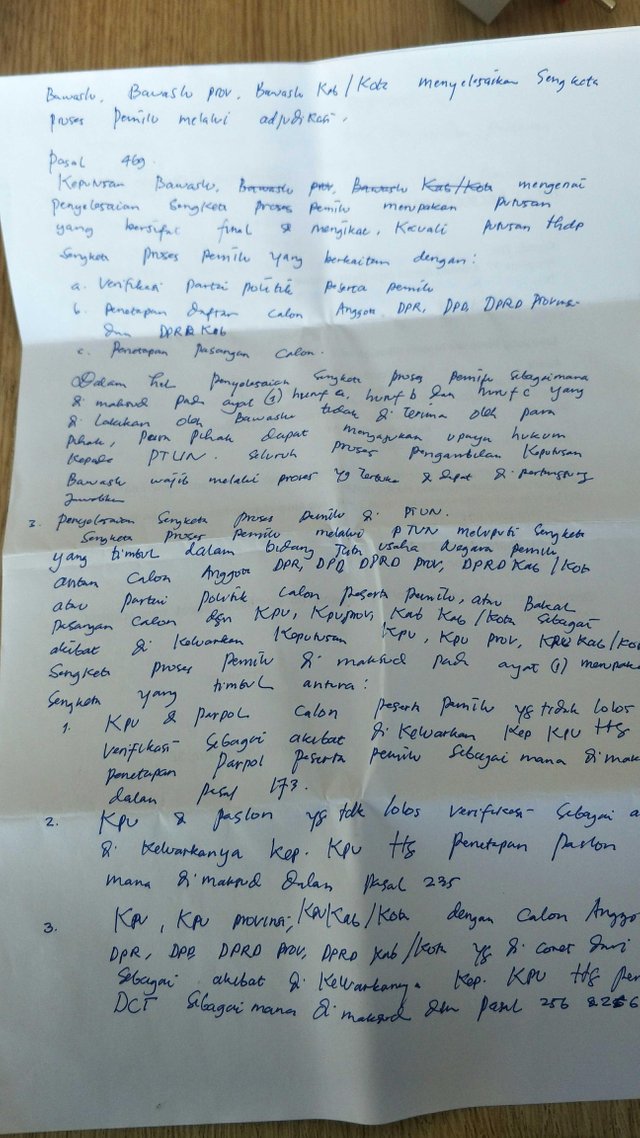 Bawaslu, Bawaslu prov, Bawaslu Kab/Kota menyelesaikan Sengketa
proses pemilu melalui adjudikasi.
Pasal 469.
Keputusan Bawaslu, Bawaslu prov, Bawaslu Kab/Kota mengenai
penyelesaian Sengketa proses pemilu merupakan putusan
yang bersifat final & mengikat, Kecuali putusan thdp
Sengketa proses pemilu yang berkaitan dengan:
a. Verifikasi partai politik peserta pemilu
b. Penetapan daftar calon Anggota DPR, DPD, DPRD Provinsi
dan DPRD Kab
c. Penetapan pasangan calon.
Dalam hal penyelesaian Sengketa proses pemilu sebagaimana
di maksud pada ayat (1) huruf a, huruf b dan huruf c yang
di lakukan oleh Bawaslu tidak di terima oleh para
pihak, para pihak dapat mengajukan upaya hukum
kepada PTUN. Seluruh proses pengambilan Keputusan
Bawaslu wajib melalui proses yg terbuka & dapat di pertanggung
Jawabkan
3. Penyelesaian Sengketa proses pemilu di PTUN.
Sengketa proses pemilu melalui PTUN meliputi Sengketa
yang timbul dalam bidang Tata usaha Negara pemilu
antara Calon Anggota DPR, DPD, DPRD prov, DPRD Kab/Kota
atau partai politik calon peserta pemilu, atau Bakal
pasangan calon dgn KPU, KPU prov, Kab Kab/Kota sebagai
akibat di keluarkan Keputusan KPU, KPU prov, KPU Kab/Kot
Sengketa proses pemilu di maksud pada ayat (1) merupaka
Sengketa yang timbul antara:
1. KPU & parpol calon peserta pemilu yg tidak lolos
verifikasi sebagai akibat di keluarkan Kep KPU ttg
penetapan parpol peserta pemilu sebagai mana di mak
dalam pasal 173.
2. KPU & paslon yg tdk lolos verifikasi sebagai a
di keluarkanya kep. KPU ttg penetapan paslon
mana di maksud dalam pasal 235
3. KPU, KPU provinsi, KPU Kab/Kota dengan calon Anggo
DPR, DPD DPRD prov, DPRD Kab/Kota yg di coret dari
sebagai akibat di keluarkanya Kep. KPU ttg pen
DCT sebagai mana di maksud dlm pasal 256 & 266